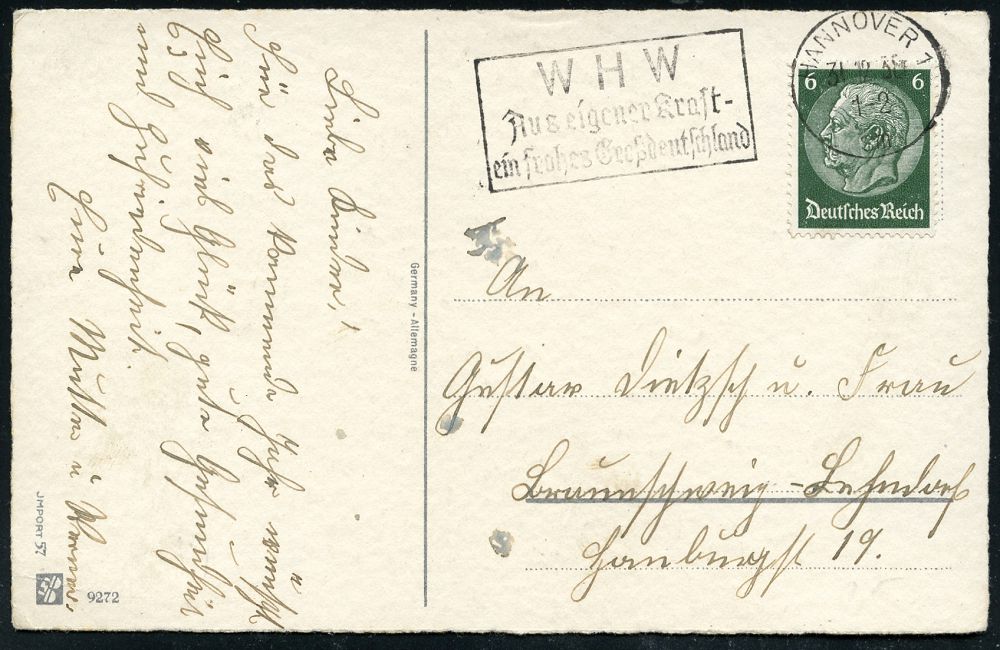 Liebe Kinder,
Für das kommende Jahr wünscht
Euch viel Glück, gute Gesundheit
und Zufriedenheit
Eure Mutter u
Germany - Allemagne
JMPORT 57
9272
W H W
Aus eigener Kraft-
ein frohes Großdeutschland
HANNOVER 1
31.12.
1-2
6 6
Deutsches Reich
An
Gustav Dietzsch u. Frau
Braunschweig-Lehndorf
Hamburgst 19.